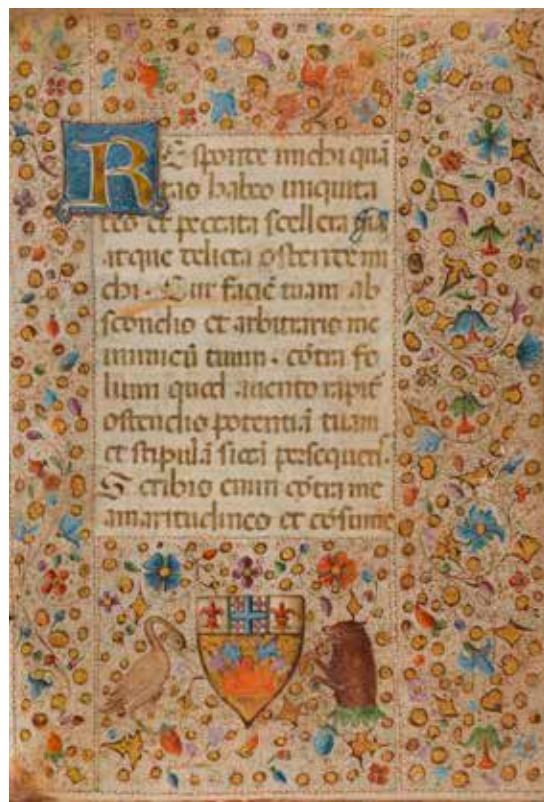 Responde michi quã
tas habeo iniquita
tes et peccata scellera mea
atque delicta ostende mi
chi. Cur faciẽ tuam ab
scondis et arbitraris me
inimicũ tuum. cõtra fo
lium quod avento rapit̃
ostendis potentiã tuam
et stipulã siccã persequeris.
Scribis enim cõtra me
amaritudines et cõsume